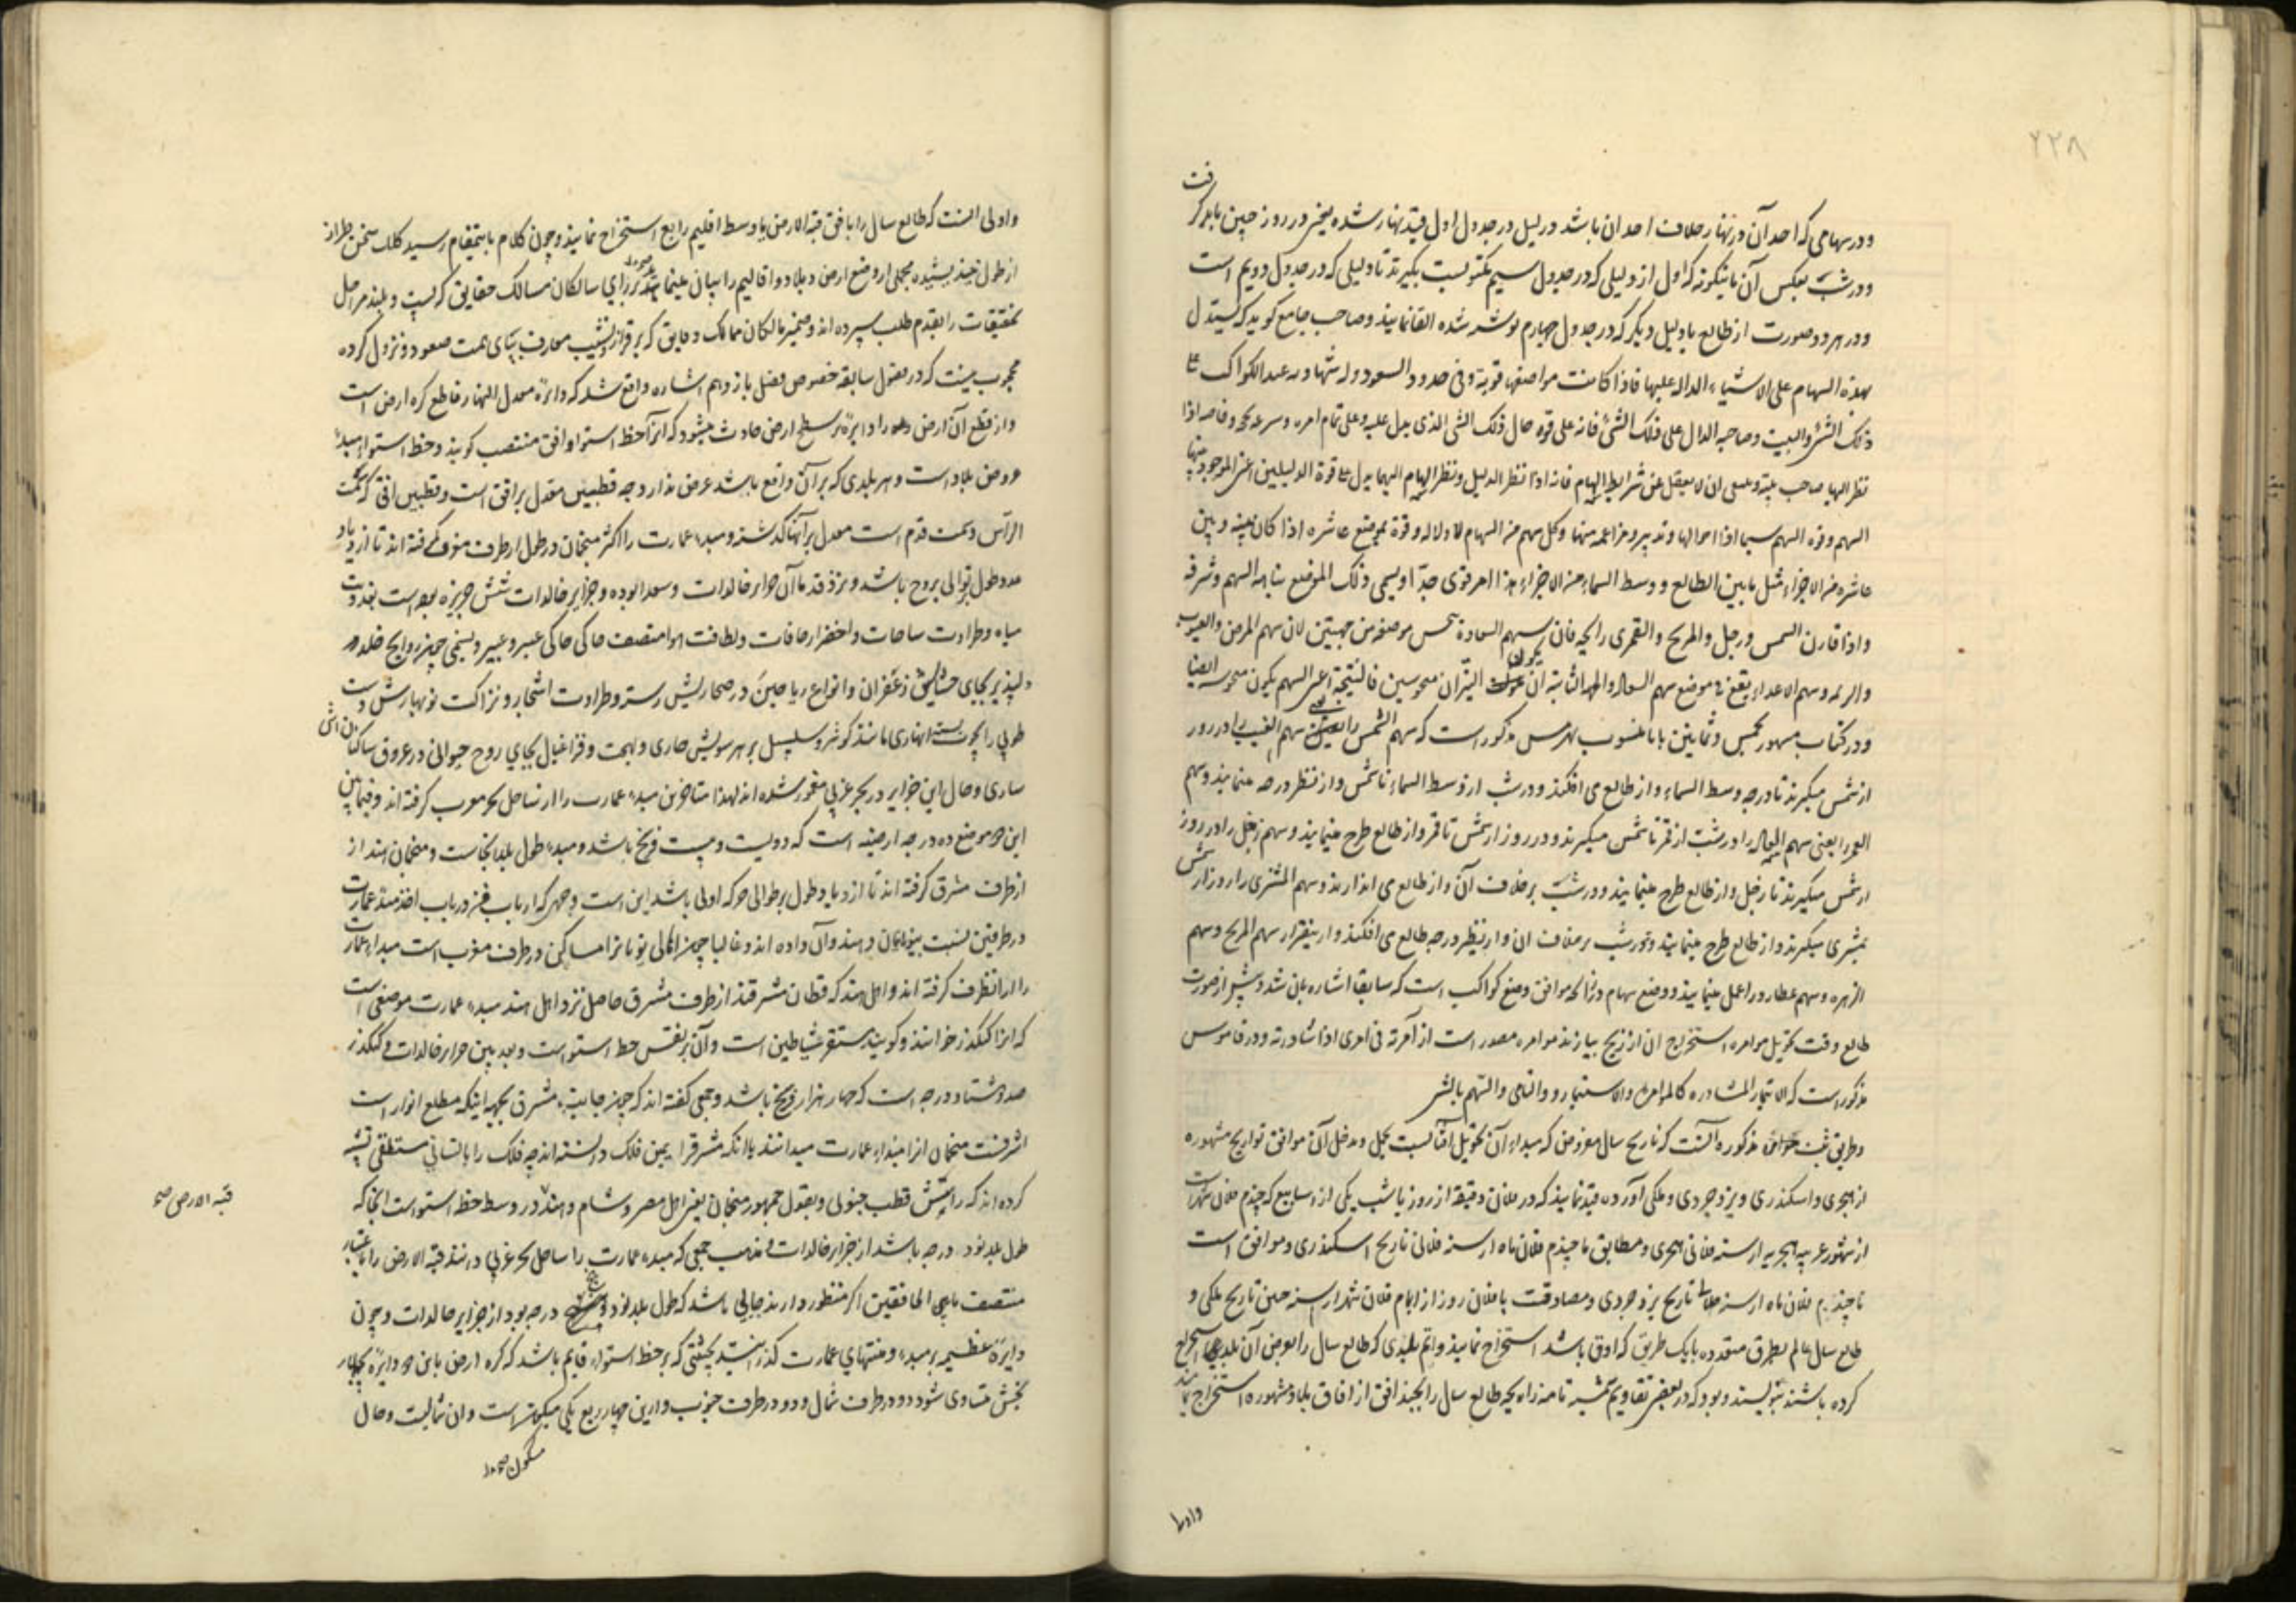 ۲۲۸
ودر سهامی که احد آن در نهار خلاف احد آن باشد در لیل در جدول اول قید نهار شده یعنی در روز چنین باید گرفت
ودر شب بعکس آن باینگونه که اول از دلیلی که در جدول سیم مکتوبست بگیرند تا دلیلی که در جدول دویم است
ودر هر دو صورت از طالع یا دلیل دیگر که در جدول چهارم نوشته شده القا نمایند وصاحب جامع گوید که یستدل
بهذه السهام علی الاشیاء الداله علیها فاذا کانت مواضعها قویة وفی حدود السعود وله شهادة عند الکواکب علی
ذلک الشئ والبیت وصاحبه الدال علی ذلک الشئ فانه علی قوة حال ذلک الشئ الذی یدل علیه وعلی تمام امره وسرعة
نظر الیها صاحب بیته وینبغی ان لا یغفل عن شرایط السهام فانه اذا نظر الدلیل ونظر السهام الیهما یدل علی قوة الدلیلین
السهم وقوة السهم سیما اذا وکل سهم من السهام لها دلالة وقوة بموضع عاشره اذا کان بینه وبین
عاشره من الاجزاء مثل ما بین الطالع ووسط السماء من الاجزاء هذا امر قوی جدّا ویسمی ذلک الموضع نباهة السهم وشرفه
واذا قارن الشمس وزحل والمریخ والقمر فان سهم السعادة نحس موضعه من جهتین لان سهم المرض والعیوب
وسهم الاعداء یقع فی موضع سهم السعاده یکون النیّران منحوسین فالنتیجة اعنی السهم یکون منحوسه ایضا
ودر کتاب مشهور بخمس وثمانین بابا منسوب بهرمس مذکور است که سهم الشمس را یعنی سهم الغیب را در روز
از شمس میگیرند تا درجه وسط السماء واز طالع می افکنند ودر شب از وسط السماء تا شمس واز نظیر درجه مینمایند وسهم
القمر را یعنی سهم السعاده را در شب از قمر تا شمس میگیرند ودر روز از شمس تا قمر واز طالع طرح مینمایند وسهم زحل را در روز
از شمس میگیرند تا زحل واز طالع طرح مینمایند ودر شب بر خلاف آن واز طالع می اندازند وسهم المشتری را روز از شمس
بمشتری میگیرند واز طالع طرح مینمایند ودر شب بر خلاف آن واز نظیر درجه طالع می افکنند واز اینقرار سهم المریخ وسهم
الزهره وسهم عطارد را عمل مینمایند ووضع سهام در زایجه موافق وضع کواکب است که سابقا اشاره بان شد وپیش از صورت
طالع وقت تحویل موامره استخراج آن از زیج بیارند موامره مصدر است از آمرته فی امری اذا شاورته ودر قاموس
مذکور است که الایتمار المشاوره کالموامرة والاستیمار والتآمر والهم بالشئ
وطریق ثبت مذکوره آنست که تاریخ سال مفروض که مبداء آن تحویل آفتابست بحمل ومدخل آن موافق تواریخ مشهوره
از هجری واسکندری ویزدجردی وملکی آورده قید نمایند که در فلان دقیقه از روز یا شب یکی از اسابیع که چندم فلان شهر است
از شهور عربیه هجریه از سنه فلانی هجری ومطابق با چندم فلان ماه از سنه فلانی تاریخ اسکندری وموافق است
با چندم فلان ماه از سنه فلان تاریخ یزدجردی ومصادفت با فلان روز از ایام فلان شهر از سنه تاریخ ملکی و
طالع سال عالم بطرق متعدده یا بیک طریق که اوثق باشد استخراج نمایند واسم بلدی که طالع سال را بعرض آن بلد استخراج
کرده باشند بنویسند وبود که در بعضی تقاویم نامه زایچه طالع سال را بچند افق از افاق بلاد مشهوره استخراج نمایند
واولی
واولی آنست که طالع سال را بافق قبة الارض یا وسط اقلیم رابع استخراج نمایند وچون کلام باینمقام رسید کلک سخن طراز
مجملی از وضع ارض وبلاد واقالیم را بیان مینماید بر رای سالکان مسالک حقایق که پست وبلند مراحل
تحقیقات را بقدم طلب سپرده اند وضمیر مالکان ممالک دقایق که بر فراز ونشیب معارف بپای همت صعود ونزول کرده
محجوب نیست که در فصول سابقه خصوص فصل یازدهم اشاره واقع شد که دائرۀ معدل النهار قاطع کره ارض است
واز قطع آن ارض را دایرۀ بر سطح ارض حادث میشود که آنرا خط استوا وافق منتصب گویند وخط استوا مبداء
عروض بلاد است وهر بلدی که بر آن واقع باشد عرض ندارد چه قطبین معدل بر افق است وقطبین افق که سمت
الرأس وسمت قدم است معدل بر آنها گذشته ومبداء عمارت را اکثر منجمان در طول از طرف مغرب گرفته اند تا ازدیاد
عدد طول بتوالی بروج باشد ونزد قدما آن جزایر خالدات وسعدا بوده وجزایر خالدات شش جزیره بوده است بعذوبت
میاه وطراوت ساحات واخضرار حافات ولطافت هوا متصف خاکی حاکی عنبر وعبیر ونسیمی چون روایح خلد
دلپذیر بجای حشایش زعفران وانواع ریاحین در صحاریش رسته وطراوت اشجار ونزاکت نو بهارش دست
طوبی را بسته انهاری مانند کوثر وسلسبیل بر هر سویش جاری وبهجت وفراغبال بجای روح حیوانی در عروق ساکنانش
ساری وحال این جزایر در بحر غربی مغمور شده اند لهذا متاخرین مبداء عمارت را از ساحل بحر مغرب گرفته اند وفیما بین
این دو موضع ده درجه ارضیه است که دویست وبیست فرسخ باشد ومبداء طول بلد از آنجاست ومنجمان هند از
از طرف مشرق گرفته اند تا ازدیاد طول بر توالی حرکه اولی باشد این است وجهی که ارباب فن در باب اخذ مبداء عمارت
در طرفین نسبت بیونانیان وهندوان داده اند وغالبا چون اهالی یونانرا مساکن در طرف مغرب است مبداء عمارت
را از آنطرف گرفته اند واهل هند که قطان مشرقند از طرف مشرق حاصل نزد اهل هند مبداء عمارت موضعی است
که آنرا کنگدز خوانند وگویند مستقر شیاطین است وآن بر نفس خط استواست وبعد بین جزایر خالدات وکنگدز
صد وهشتاد درجه است که چهار هزار فرسخ باشد وجمعی گفته اند که چون جانب مشرق بجهة اینکه مطلع انوار است
اشرفست منجمان آنرا مبداء عمارت میدانند یا آنکه مشرق را یمین فلک دانسته اند چه فلک را بانسانی مستلقی تشبیه
کرده اند که رأسش قطب جنوبی وبقول جمهور منجمان یعنی اهل مصر وشام وهند در وسط خط استواست آنجا که
طول بلد نود درجه باشد از جزایر خالدات وبمذهب جمعی که مبداء عمارت را ساحل بحر غربی دانند قبة الارض را باعتبار
منتصف مابین الخافقین اگر منظور دارند جایی باشد که طول بلد نود وپنج درجه بود از جزایر خالدات وچون
دایرۀ عظیمه بر مبداء ومنتهای عمارت گذرانند بحیثیتی که بر خط استوا قایم باشد کره ارض باین دو دایرۀ بچهار
بخش متساوی شود دو در طرف شمال ودو در طرف جنوب واز این چهار ربع یکی است وآن شمالیست وحال
مسکون صح
قبة الارض صح